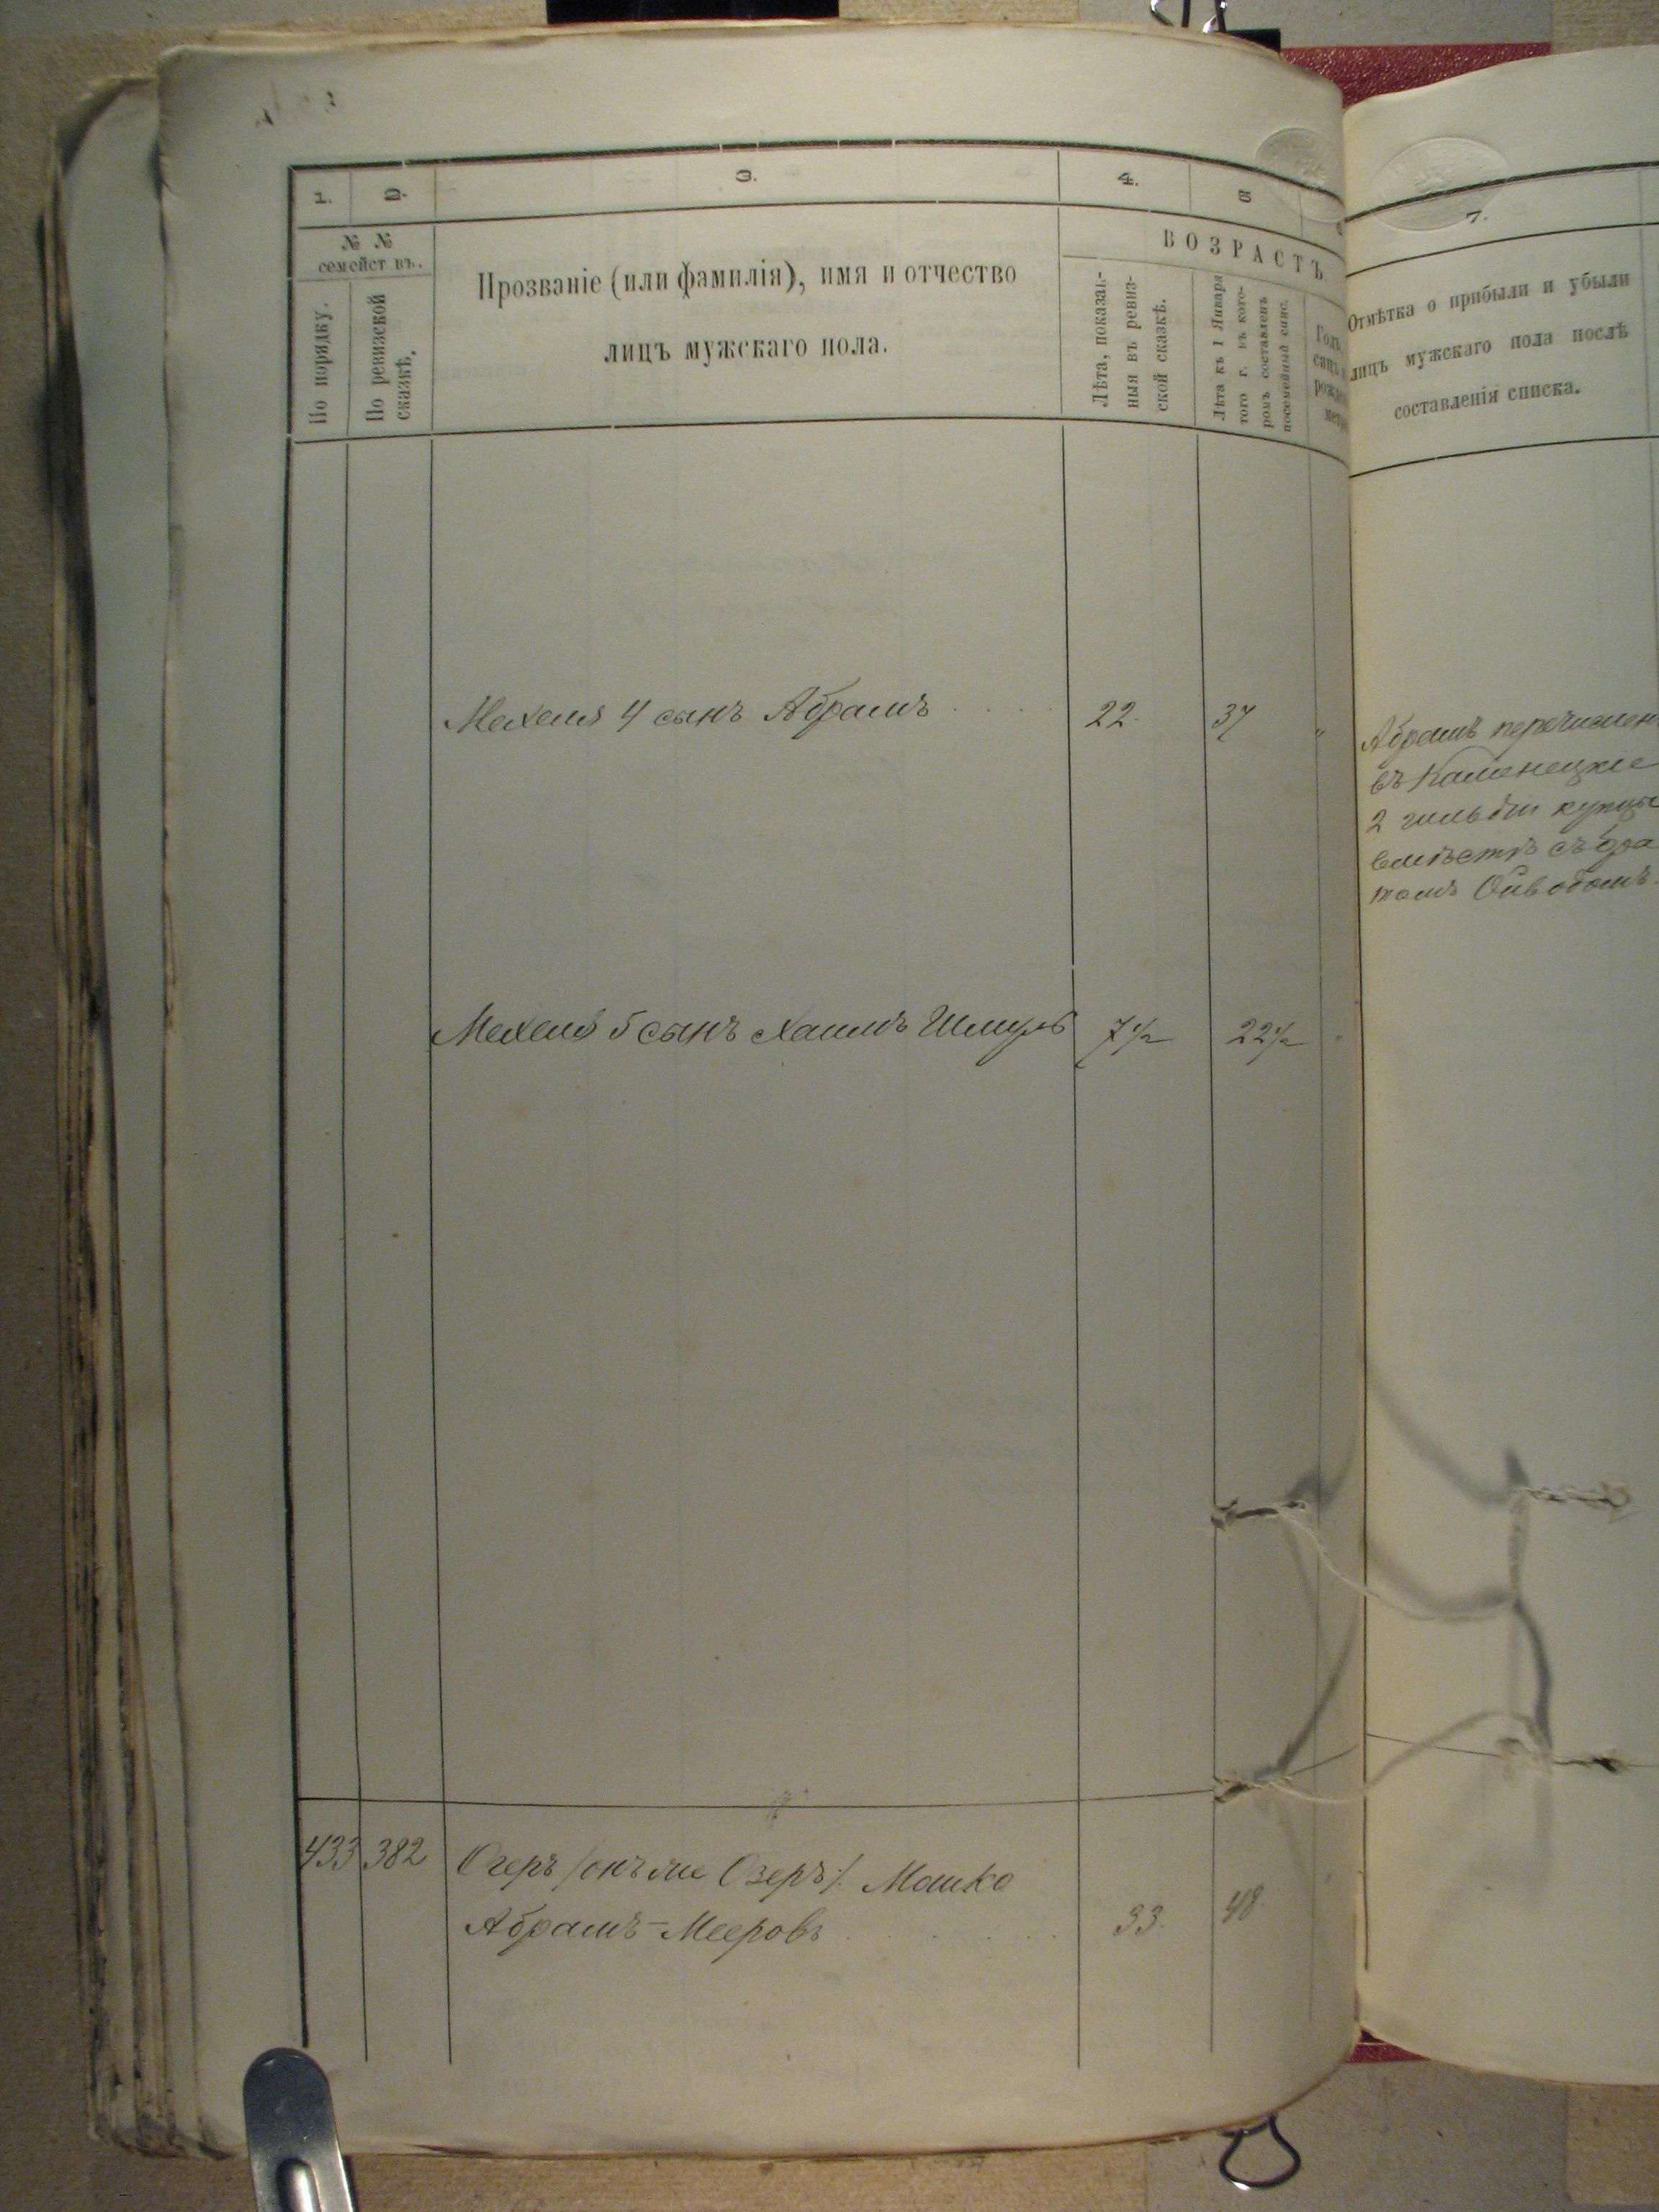 1.
2.
3.
4.
5
7.
№ №
семействъ.
По порядку.
По ревизской
сказкѣ.
Прозваніе (или фамилія), имя и отчество
лицъ мужскаго пола.
ВОЗРАСТЪ
Лѣта, показан-
ныя въ ревиз-
ской сказкѣ.
Лѣта къ 1 Января
того г. въ кото-
ромъ составленъ
посемейный спис.
Отмѣтка о прибыли и убыли
лицъ мужскаго пола послѣ
составленія списка.
Мехеля 4 сынъ Абрамъ 22. 37 "
Абрамъ перечислен
въ Каменецкіе
2 гильдіи купцы
вмѣстѣ съ бра
томъ
Мехеля 5 сынъ Хаимъ Шмуль 7½ 22½ "
433 382 Огеръ /онъ же Озеръ/. Мошко
Абрамъ-Мееровъ 33. 48